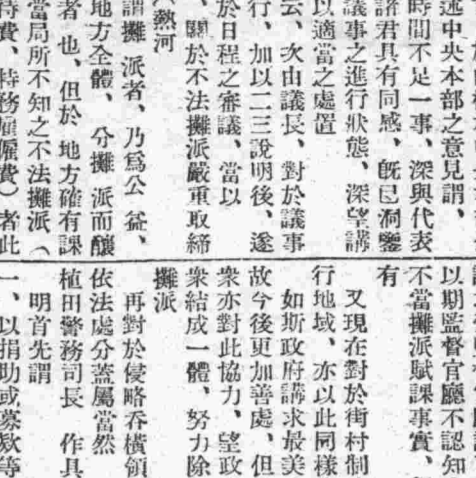 述中央本部之意見謂、
時間不足一事、深與代表
諸君具有同感、旣已洞鑒
議事之進行狀態、深望講
以適當之處置
云、次由議長、對於議事
行、加以二三說明後、遂
於日程之審議、當以
、關於不法攤派嚴重取締
熱河
謂攤 派者、乃爲公 益、
地方全體、分攤 派而釀
者 也、但於 地方確有課
當局所不知之不法攤派（
待費、特務僱僱費）者此
以期監督官廳不認知
不當攤派賦課事實、
有
又現在對於街村制
行地域、亦以此同樣
如斯政府講求最美
故今後更加善處、但
衆亦對此協力、望政
衆結成一體、努力除
攤派
再對於侵略吞橫領
依法處分蓋屬當然
植田警務司長 作具
明首先謂
一、以捐助或募款等